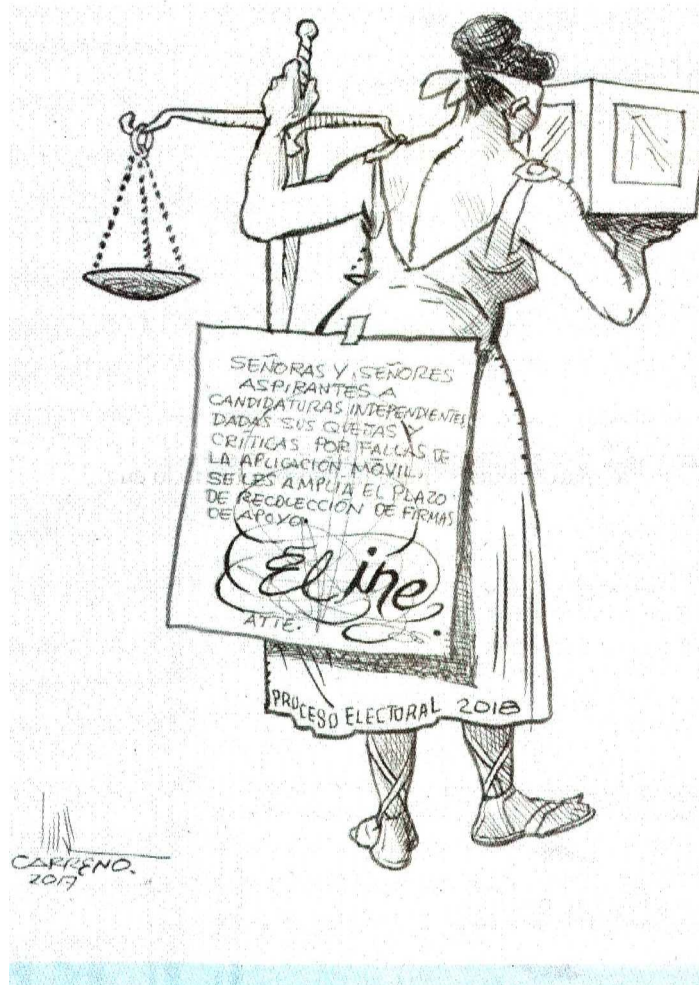 SEÑORAS Y SEÑORES
ASPIRANTES A
CANDIDATURAS INDEPENDIENTES
DADAS SUS QUEJAS Y
CRÍTICAS POR FALLAS DE
LA APLICACIÓN MÓVIL,
SE LES AMPLIA EL PLAZO
DE RECOLECCIÓN DE FIRMAS
DE APOYO.
El ine.
ATTE.
PROCESO ELECTORAL 2018
CARREÑO.
2017